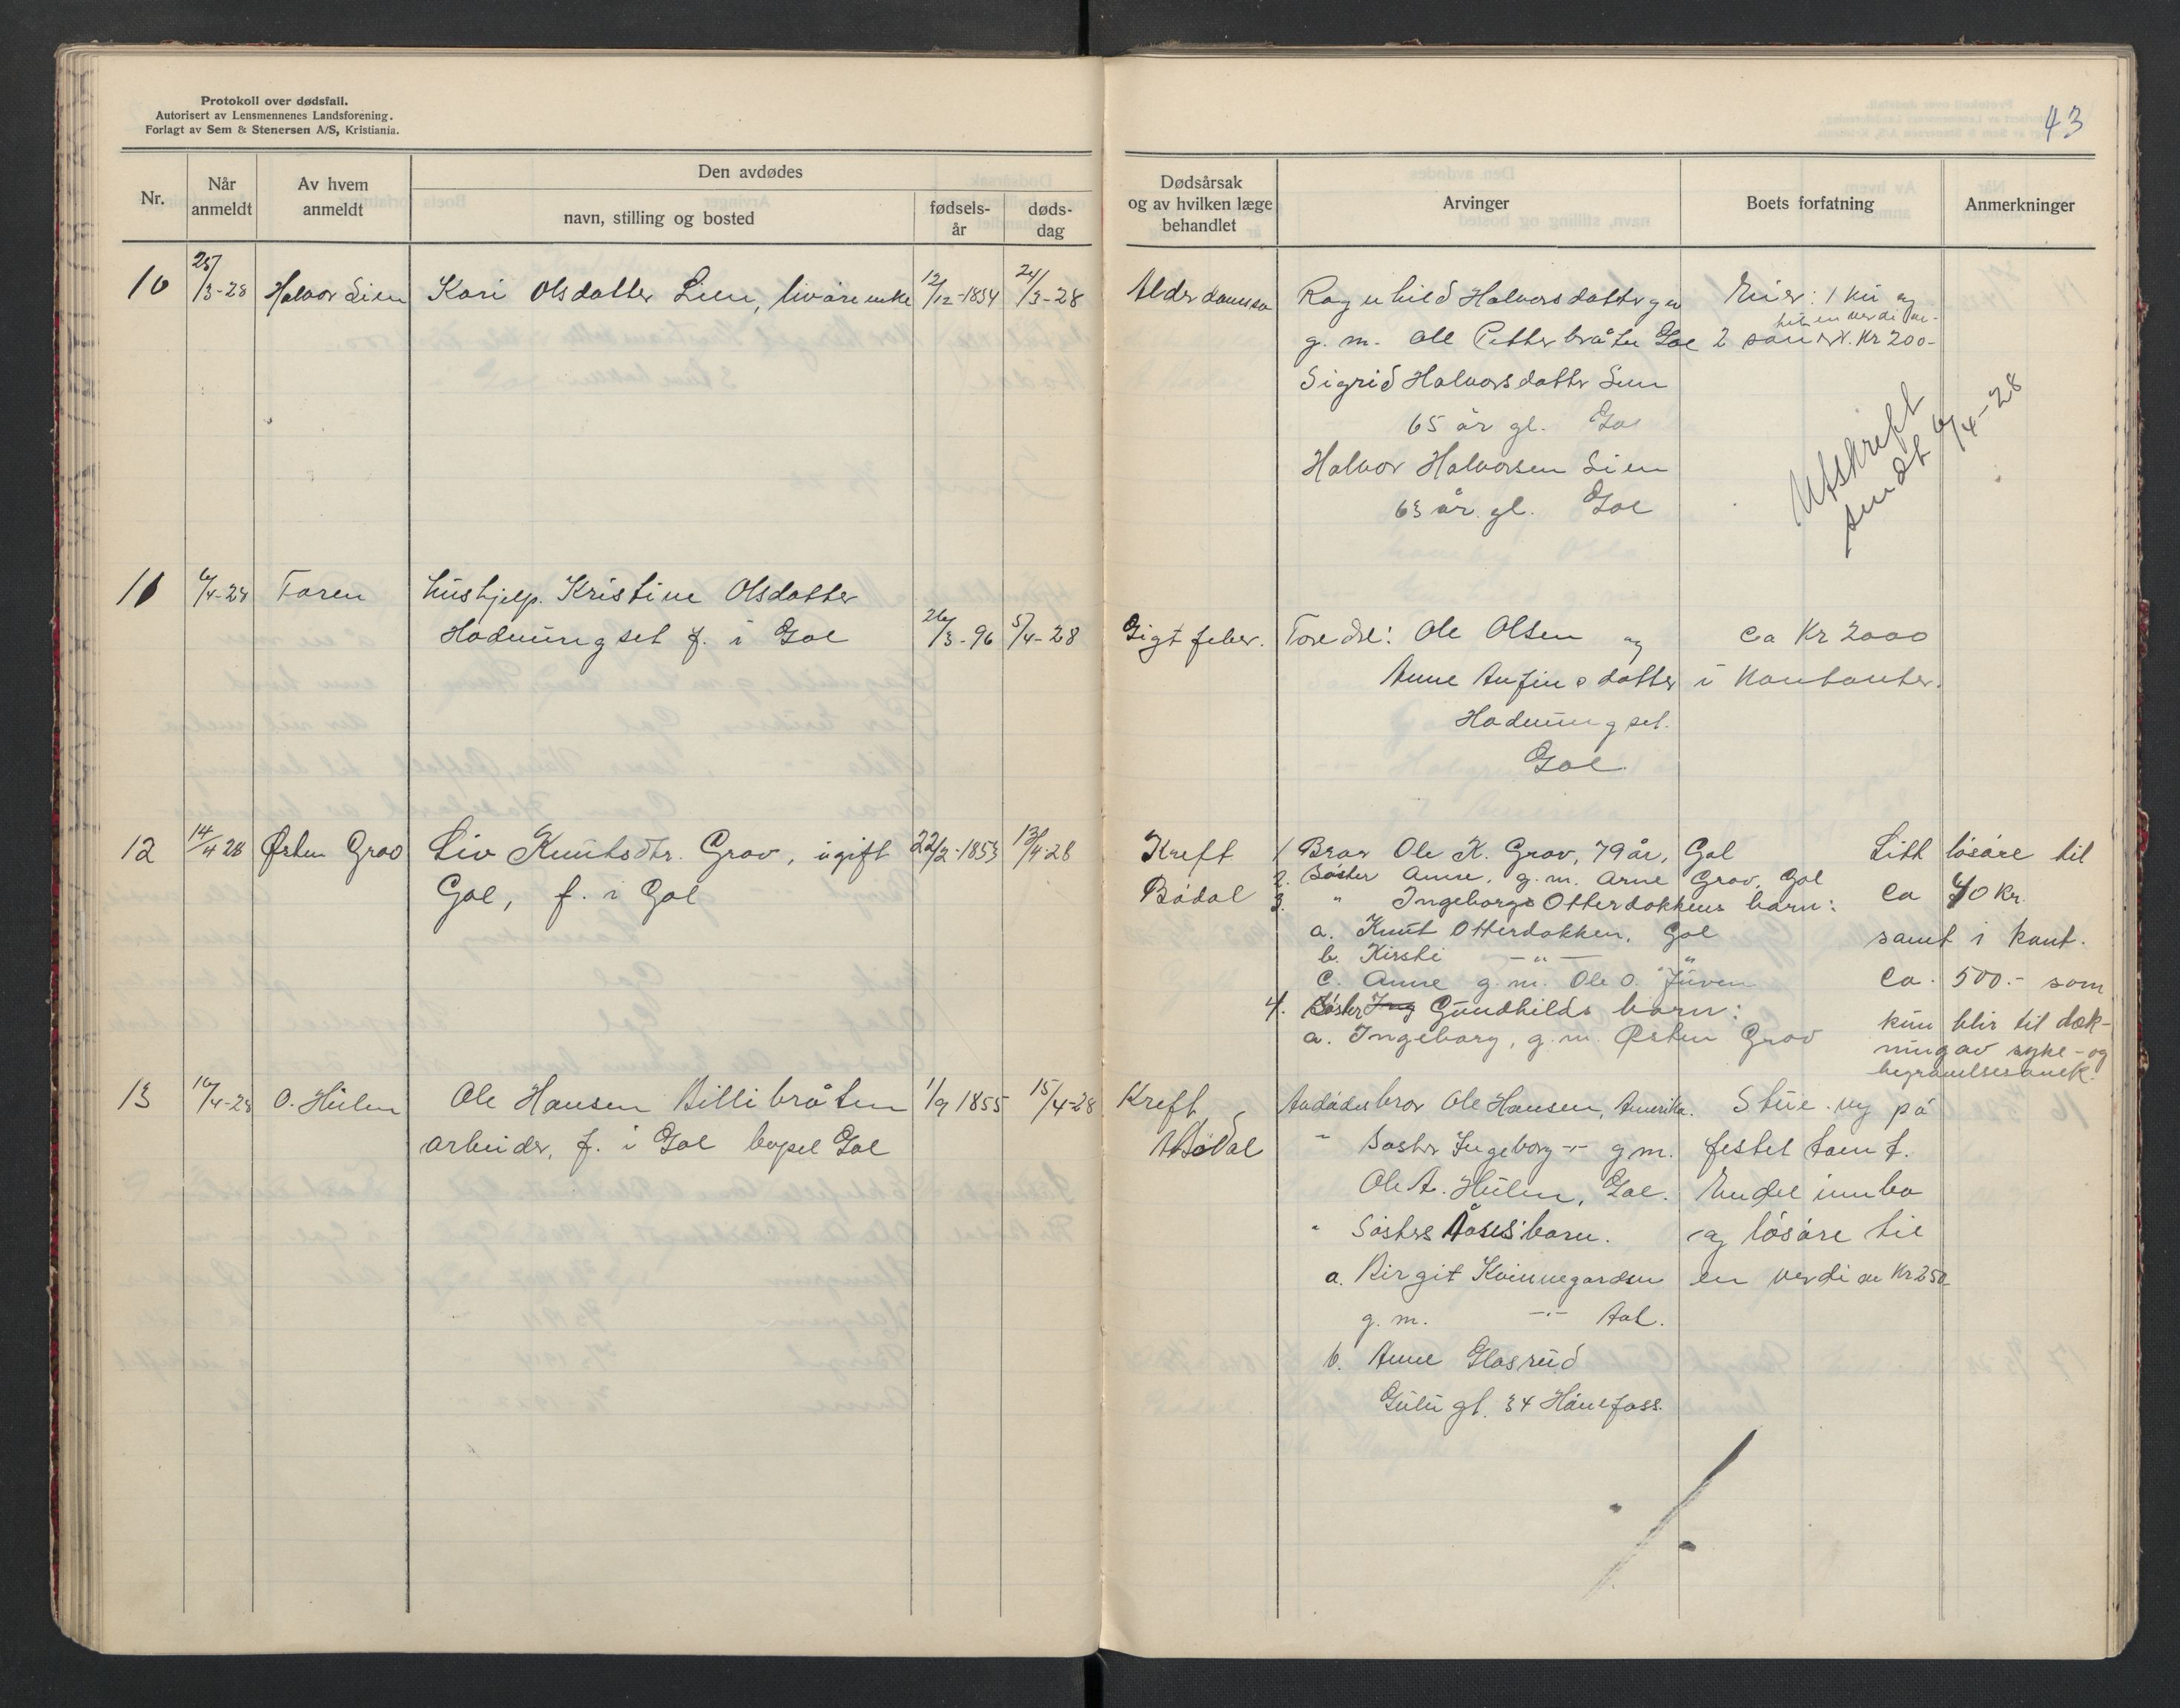 Protokoll over dødsfall.
Autorisert av Lensmennenes Landsforening.
Forlagt av Sem & Stenersen A/S, Kristiania.
43
Nr.
Når anmeldt
Av hvem anmeldt
Den avdødes
navn, stilling og bosted
fødsels-år
døds-dag
Dødsårsak og av hvilken læge behandlet
Arvinger
Boets forfatning
Anmerkninger
10 25/3-28 Halvor Lien Kari Olsdatter Lien, livøreenke 12/12-1834 24/3-28 Alderdomsv
Ragnhild Halvorsdatter
g. m. Ole Petterbråten Gol
Sigrid Halvorsdatter Lien
65 år gl. Gol
Halvor Halvorsen Lien
63 år gl. Gol
Eier: 1 ku og
til en verdi av
2 sauer. Kr 200-
Utskrift
sendt 6/4-28
11 6/4-28 Faren hushjelp. Kristine Olsdatter
Hødnungset f. i Gol 26/3-96 5/4-28 Gigtfeber.
Foreldre: Ole Olsen og
Anne Anfinsdatter
Hødnungset.
Gol
Ca Kr 2000
i Kontanter.
12 14/4 28 Østen Grov Liv Knutsdtr. Grov, ugift 22/2-1853 13/4-28
Gol, f. i Gol
Kreft
Bødal
1 Bror Ole K. Grov, 79 år, Gol
2. Søster Anne, g.m. Arne Grov, Gol
3. " Ingeborgs Otterdokkens barn:
a. Knut Otterdokken, Gol
b. Kirsti -"- "
c. Anne g.m. Ole O. Juven
4. Søster Ing Gundhilds barn:
a. Ingeborg, g.m. Østen Grov
Litt løsøre til
ca 40 kr.
samt i kont.
ca. 500.- som
kun blir til dæk-
ning av syke- og
begravelsesomk.
13 16/4-28 O. Hulen Ole Hansen Billibråten 1/9 1855 15/4-28
arbeider, f. i Gol bopel Gol
Kreft
Bødal
Avdødes bror Ole Hansen, Amerika.
" Søster Ingeborg -"- g m.
Ole A. Hulen, Gol.
" Søsters Åses barn.
a. Birgit Kvinnegarden
g. m. -"- Aal.
b. Anne Glasrud
Gulu gt. 34 Hönefoss.
Stue. ny på
festet tomt.
Endel innbo
og løsøre til
en verdi av Kr 250-